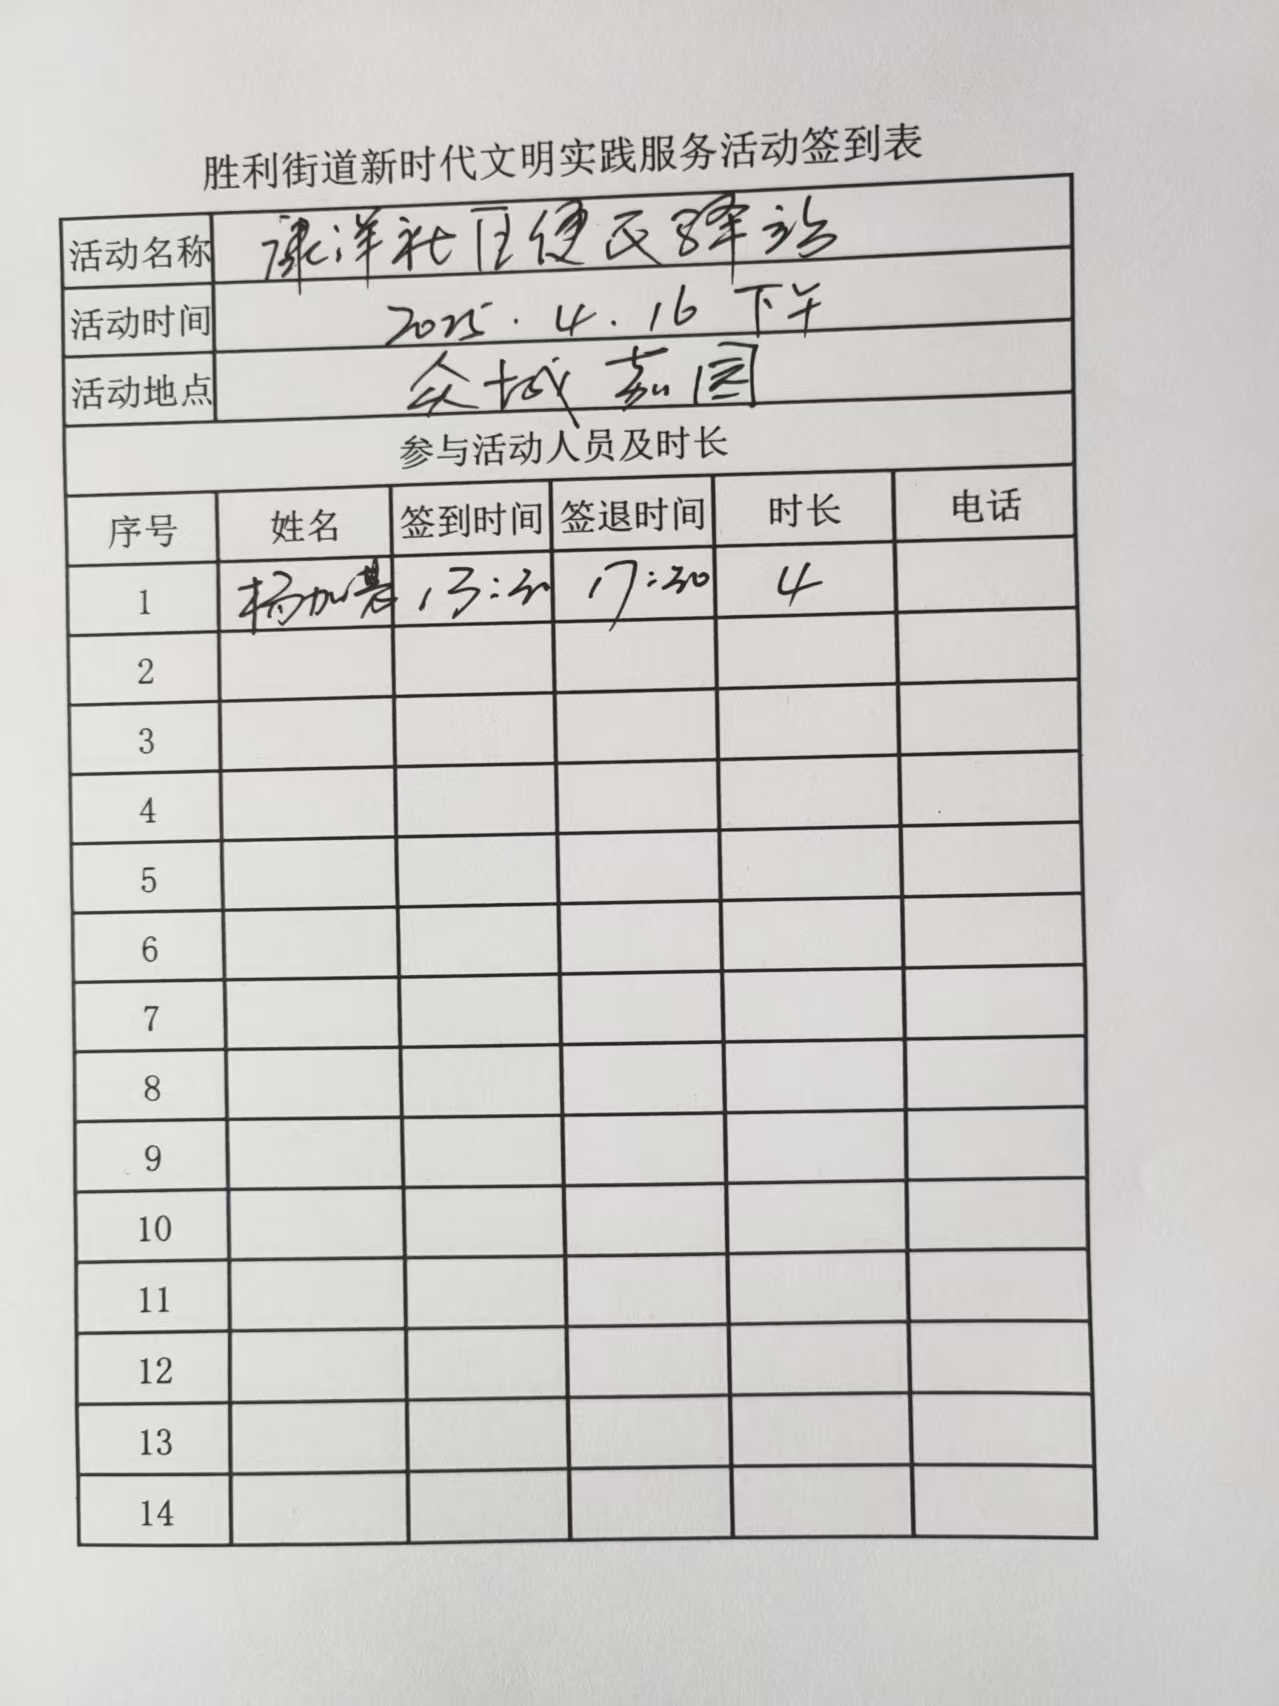 胜利街道新时代文明实践服务活动签到表
活动名称 康洋社区便民驿站
活动时间 2025.4.16 下午
活动地点 众城嘉园
参与活动人员及时长
序号 姓名 签到时间 签退时间 时长 电话
1 杨加 13:30 17:30 4
2
3
4
5
6
7
8
9
10
11
12
13
14